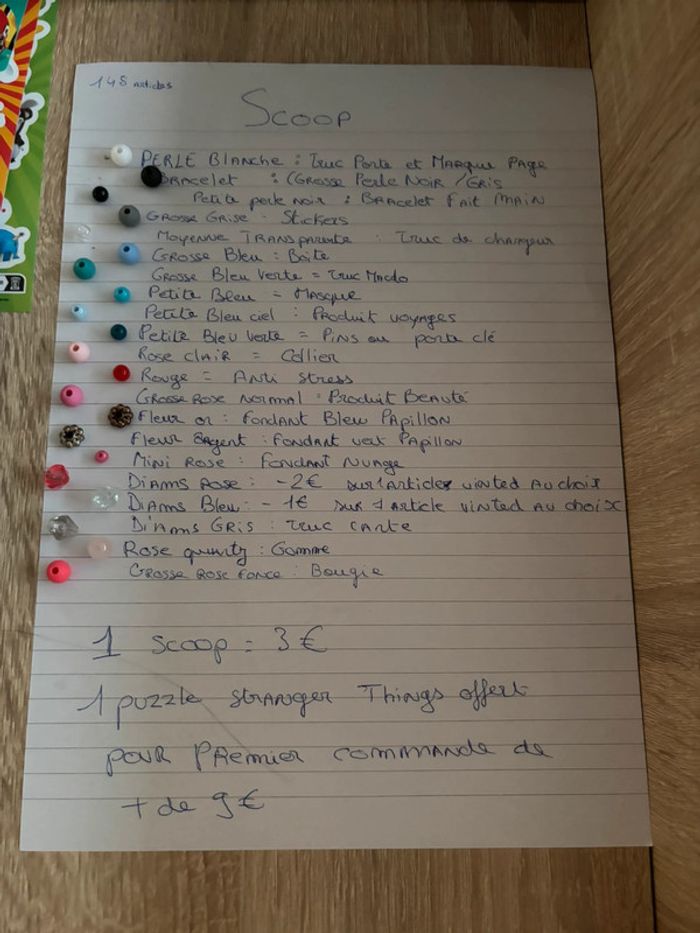 148 articles
SCOOP
PERLE Blanche : Truc Porte et MARque PAGE
BRAcelet : (GROSSE Perle NOIR / GRIS
Petite perle noir : BRACELET FAIT MAIN
GROSSE GRISE : STICKERS
Moyenne TRANSPArente : Truc de chargeur
GROSSE Bleu : Boite
GROSSE Bleu verte = Truc Macdo
Petite Bleu = MASQUE
Petite Bleu ciel : PRoduit voyages
Petite Bleu verte = PINS ou porte clé
Rose clair = Collier
Rouge = Anti stress
GROSSE ROSE NORMAL : PRoduit BeAuté
Fleur or : FONDANT Bleu PApillon
Fleur Argent : FONDANT vert PApillon
MINI ROSE : FONDANT NUAGE
DiAMS ROSE : -2€ sur 1 Article vinted AU choix
DiAMS Bleu : -1€ sur 1 Article vinted AU choix
DiAMS GRIS : Truc CARTE
Rose quartz : Gomme
GROSSE ROSE FONCE : Bougie
1 Scoop = 3€
1 puzzle STRANGER Things offert
POUR PREMIER COMMANDE de
+ de 9€